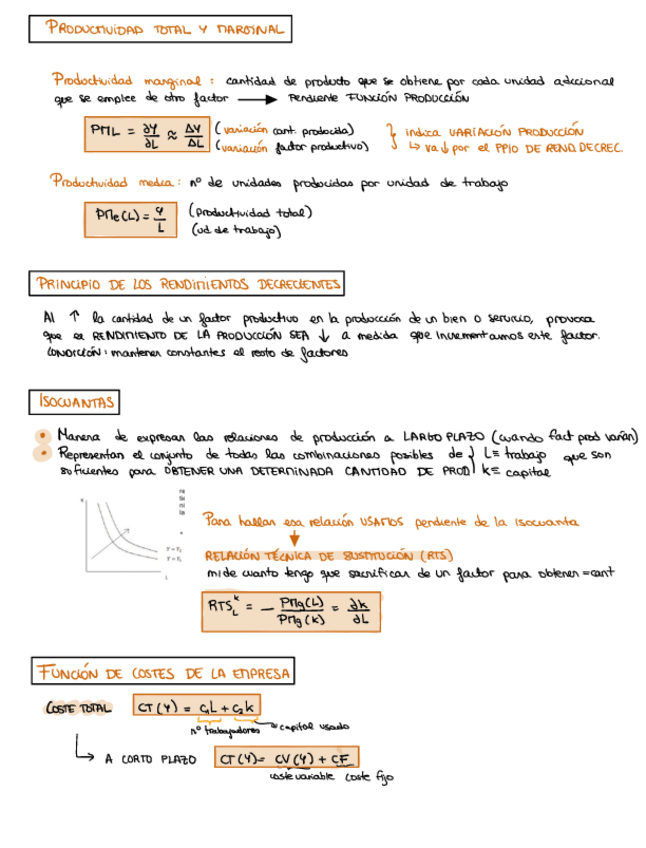 PRODUCTIVIDAD TOTAL Y MARGINAL
Productividad marginal : cantidad de producto que se obtiene por cada unidad adicional
que se emplee de otro factor → Pendiente FUNCIÓN PRODUCCIÓN
PML = ∂Y/∂L ≈ ΔY/ΔL (variación cant. producida)
(variación factor productivo)
} indica VARIACIÓN PRODUCCIÓN
↳ va ↓ por el PPIO DE REND. DECREC.
Productividad media : nº de unidades producidas por unidad de trabajo
PMe(L) = Y/L (productividad total)
(ud de trabajo)
PRINCIPIO DE LOS RENDIMIENTOS DECRECIENTES
Al ↑ la cantidad de un factor productivo en la producción de un bien o servicio, provoca
que el RENDIMIENTO DE LA PRODUCCIÓN SEA ↓ a medida que incrementamos este factor.
CONDICIÓN : mantener constantes el resto de factores
ISOCUANTAS
• Manera de expresar las relaciones de producción a LARGO PLAZO (cuando fact prod varían)
• Representan el conjunto de todas las combinaciones posibles de } L = trabajo que son
suficientes para OBTENER UNA DETERMINADA CANTIDAD DE PROD } k = capital
K
Y = Y₂
Y = Y₁
L
Para hallar esa relación USAMOS pendiente de la isocuanta
RELACIÓN TÉCNICA DE SUSTITUCIÓN (RTS)
mide cuanto tengo que sacrificar de un factor para obtener = cant
RTS_L^k = - PMg(L)/PMg(k) = ∂k/∂L
FUNCIÓN DE COSTES DE LA EMPRESA
COSTE TOTAL CT(Y) = C₁L + C₂k
nº trabajadores capital usado
↳ A CORTO PLAZO CT(Y) = CV(Y) + CF
coste variable coste fijo